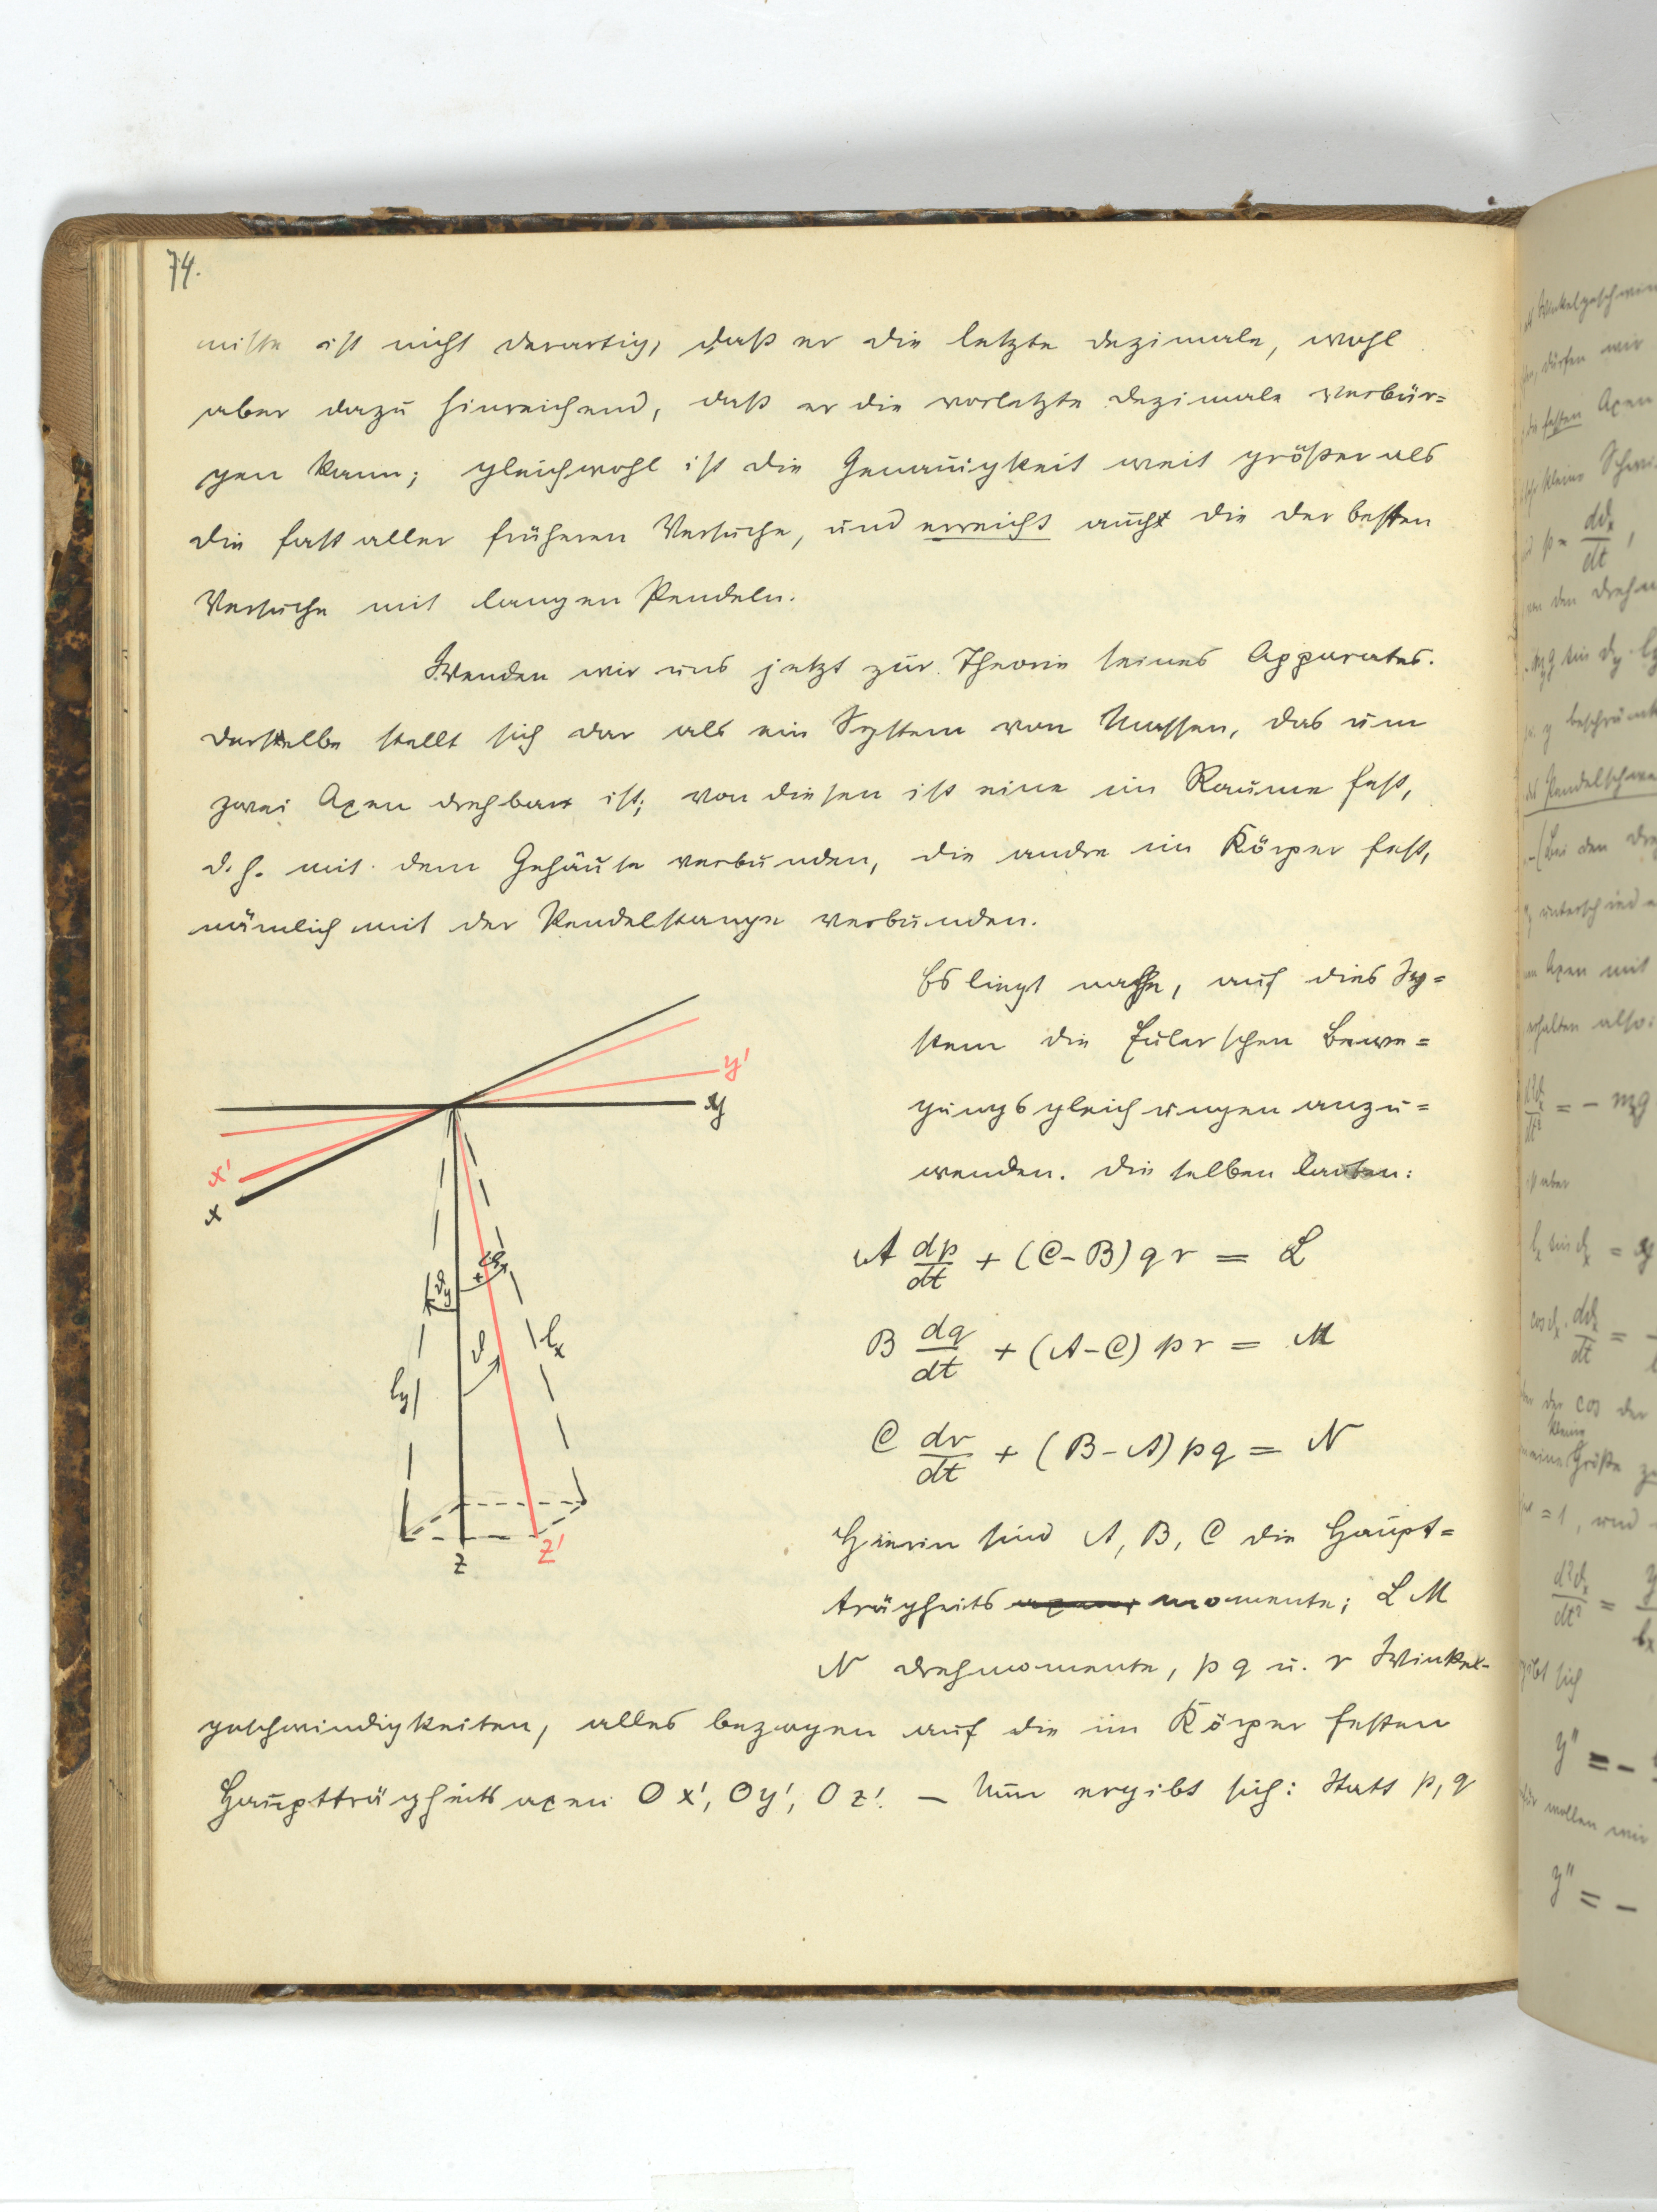 74.
nisse ist nicht derartig, daß er die letzte Dezimale, wohl
aber dazu hinreichend, daß er die vorletzte Dezimale verbür=
gen kann; gleichwohl ist die Genauigkeit weit größer als
die fast aller früheren Versuche, und erreicht auch die der besten
Versuche mit langen Pendeln.
Wenden wir uns jetzt zur Theorie seines Apparates.
Derselbe stellt sich dar als ein System von Massen, das um
zwei Axen drehbar ist; von diesen ist eine im Raume fest,
d. h. mit dem Gehäuse verbunden, die andre im Körper fest,
nämlich mit der Pendelstange verbunden.
Es liegt nahe, auf dies Sy=
stem die Eulerschen Bewe=
gungsgleichungen anzu=
wenden. Dieselben lauten:
A dp/dt + (C-B) q r = L
B dq/dt + (A-C) p r = M
C dr/dt + (B-A) p q = N
Hierin sind A, B, C die Haupt=
trägheitsmomente; L M
N Drehmomente, p q u. r Winkel-
geschwindigkeiten, alles bezogen auf die im Körper festen
Hauptträgheitsaxen O x', O y', O z'. — Nun ergibt sich: Statt p, q
y'
y
x'
x
ϑy
+
ϑx
ϑ
lx
ly
z
z'